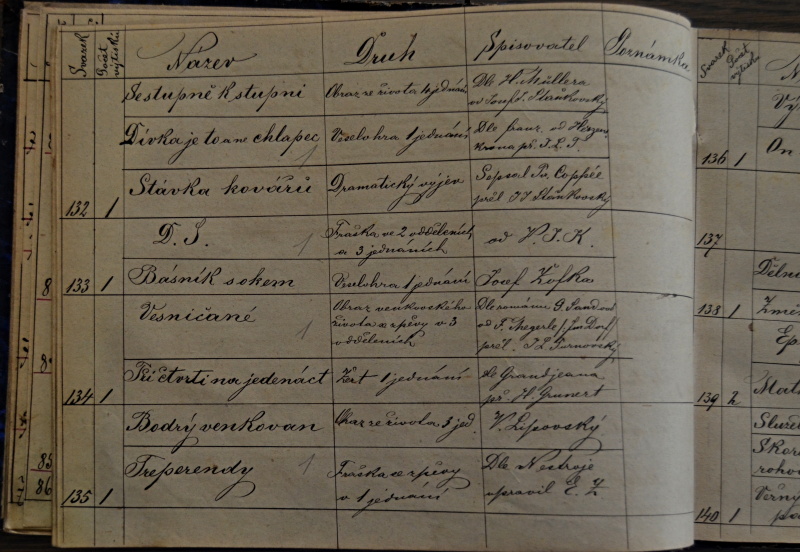 Svazek Počet výtisků Název Druh Spisovatel Poznámka
Se stupně k stupni Obraz ze života 4 jednán Dle H. Müllera
od Josefa Staňkovský
Dívka je to a ne chlapec 1 Veselohra 1 jednání Dle franc. od Herzen-
krona př. J. L. T.
132 1 Stávka kovářů Dramatický výjev Sepsal Fr. Coppée
přel JJ Staňkovský
D. S. 1 Fraška ve 2 odděleních
a 3 jednáních od V. J. K.
133 1 Básník s okem Veselohra 1 jednání Josef Žofka
Vesničané 1 Obraz venkovského
života ze zpěvy o 3
odděleních Dle románu G. Sand od
od F. Megerle
přel. J L Turnovský
134 1 Tři čtvrti na jedenáct Žert 1 jednání dle Grandjeana
př. H. Grunert
Bodrý venkovan Obraz ze života 3 jed. V. Lipovský
135 1 Treperendy 1 Fraška ze zpěvy
o 1 jednání Dle Nestroje
upravil E. Z
8
8
85
86
Svazek Počet výtisk N
Vý
136 1 On
137
Děln
138 1 Změ
Ep
139 2 Mat
Služeb
Skor
rohov
140 1 Věrný
po